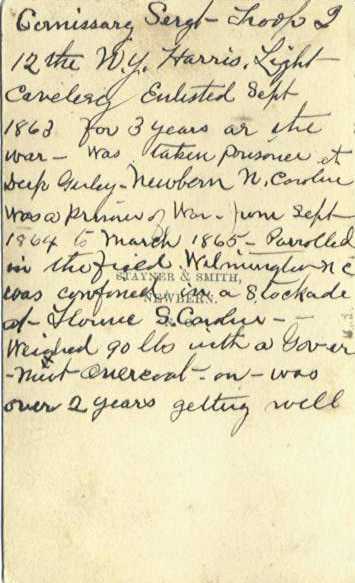 Comissary Sergt - Troop I
12 the N.Y. Harris, Light
Cavelery Enlisted Sept
1863 for 3 years or the
war - was taken prisoner at
Deep Gulley - Newbern N. Caroline
was a Prisoner of War - from Sept
1864 to March 1865 - Parrolled
in the field Wilmington N C
STAYNER & SMITH,
was confined in a Stockade
NEWBERN.
at - Florence S. Caroline -
Weighed 90 lbs with a Gover
-ment Overcoat - on - was
over 2 years getting well